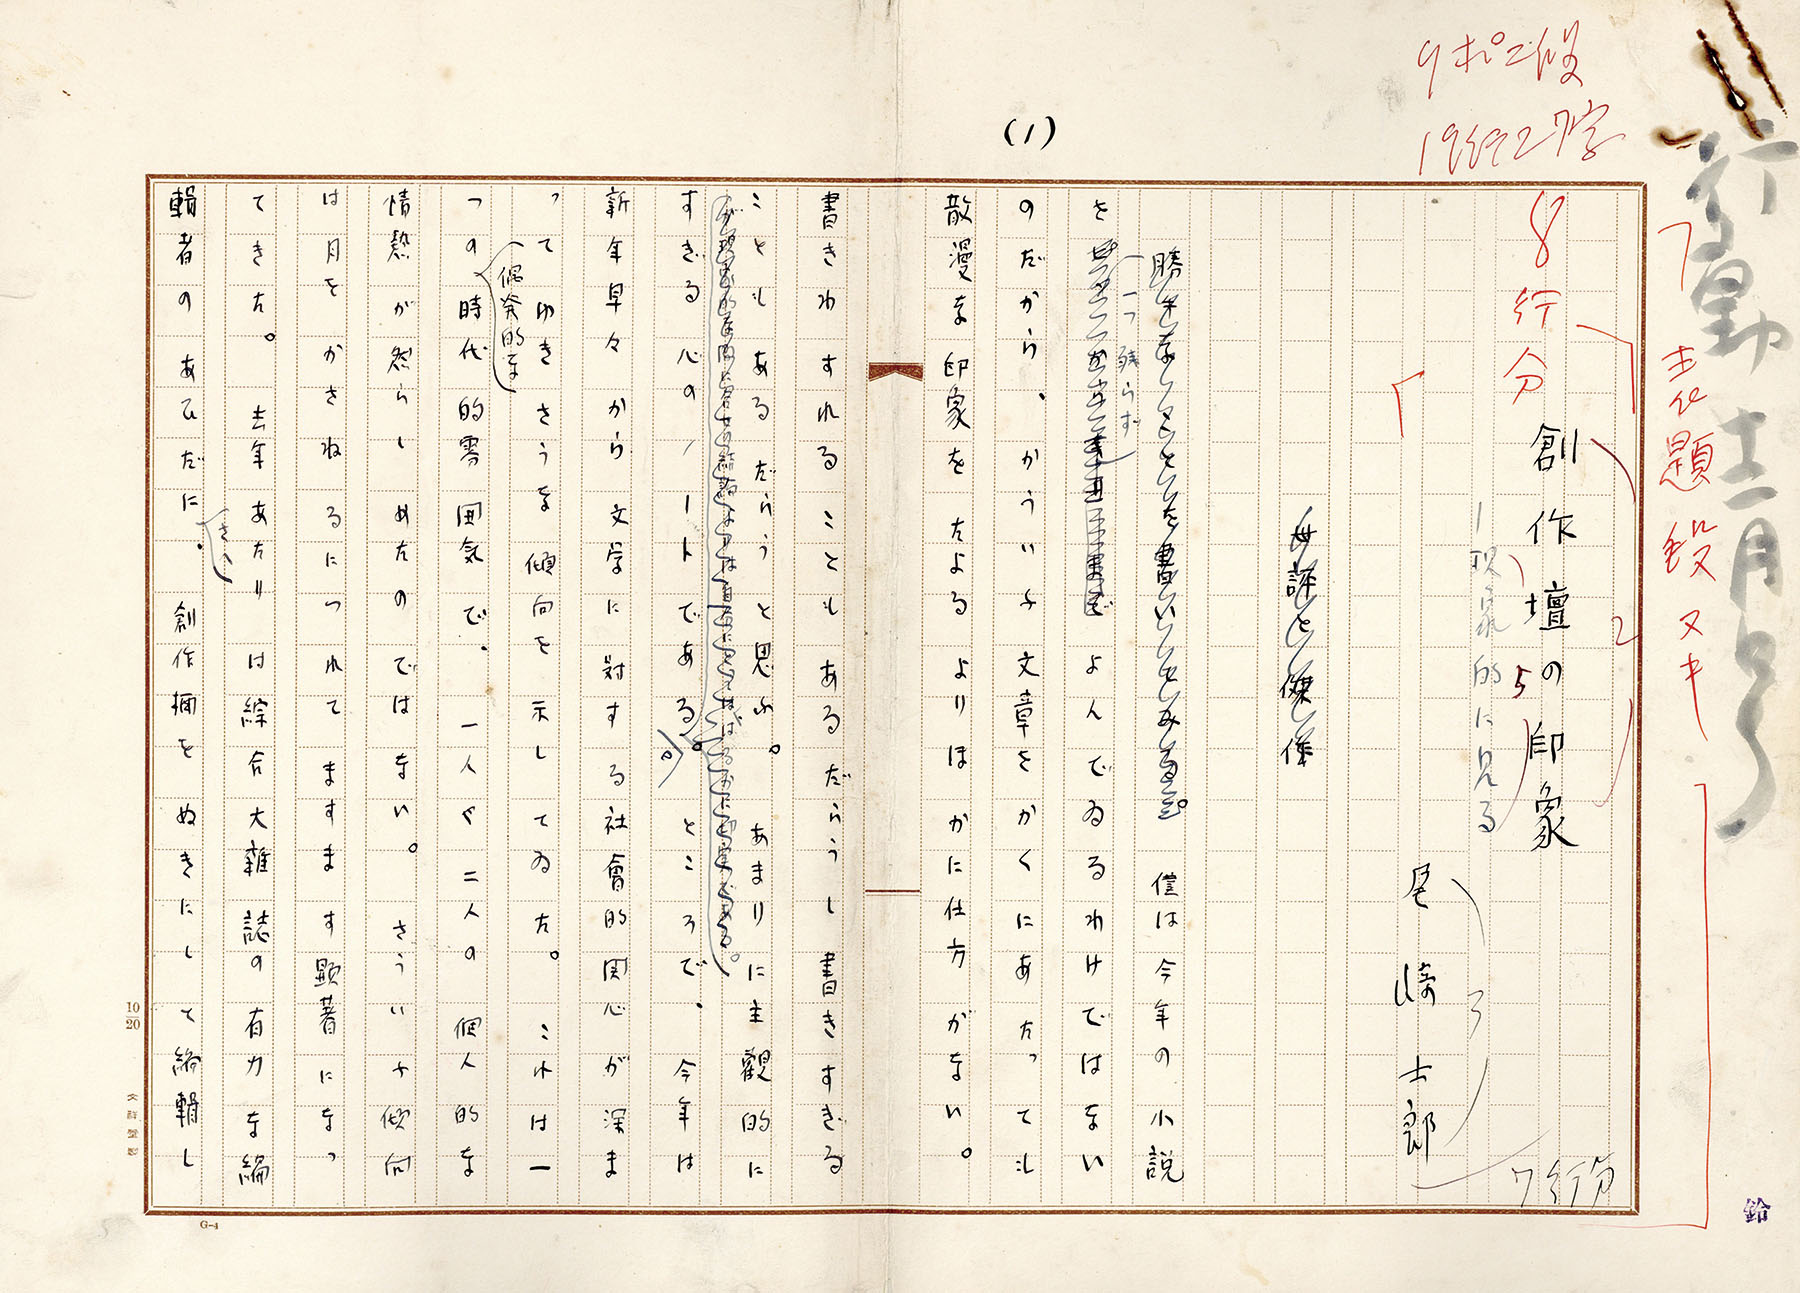 行動 十二月号
9ポ二段
19行27字
(1)
表題 9段 ヌキ
8行分
創作壇の印象
尾崎士郎
7行分
僕は今年の小説
を一つ残らずよんでゐるわけではない
のだから、かういふ文章をかくにあたっても
散漫な印象をたよるよりほかに仕方がない。
書きわすれることもあるだらうし書きすぎる
こともあるだらうと思ふ。あまりに主観的に
すぎる心のノートである。ところで、今年は
新年早々から文学に対する社會的関心が深ま
ってゆきさうな傾向を示してゐた。これは一
つの偶発的な時代的雰囲気で、一人や二人の個人的な
情熱が然らしめたのではない。さういふ傾向
は月をかさねるにつれてますます顕著になっ
てきた。去年あたりは綜合大雑誌の有力な編
輯者のあひだにさへ、創作欄をぬきにして編輯し
10/20
G-4
鈴